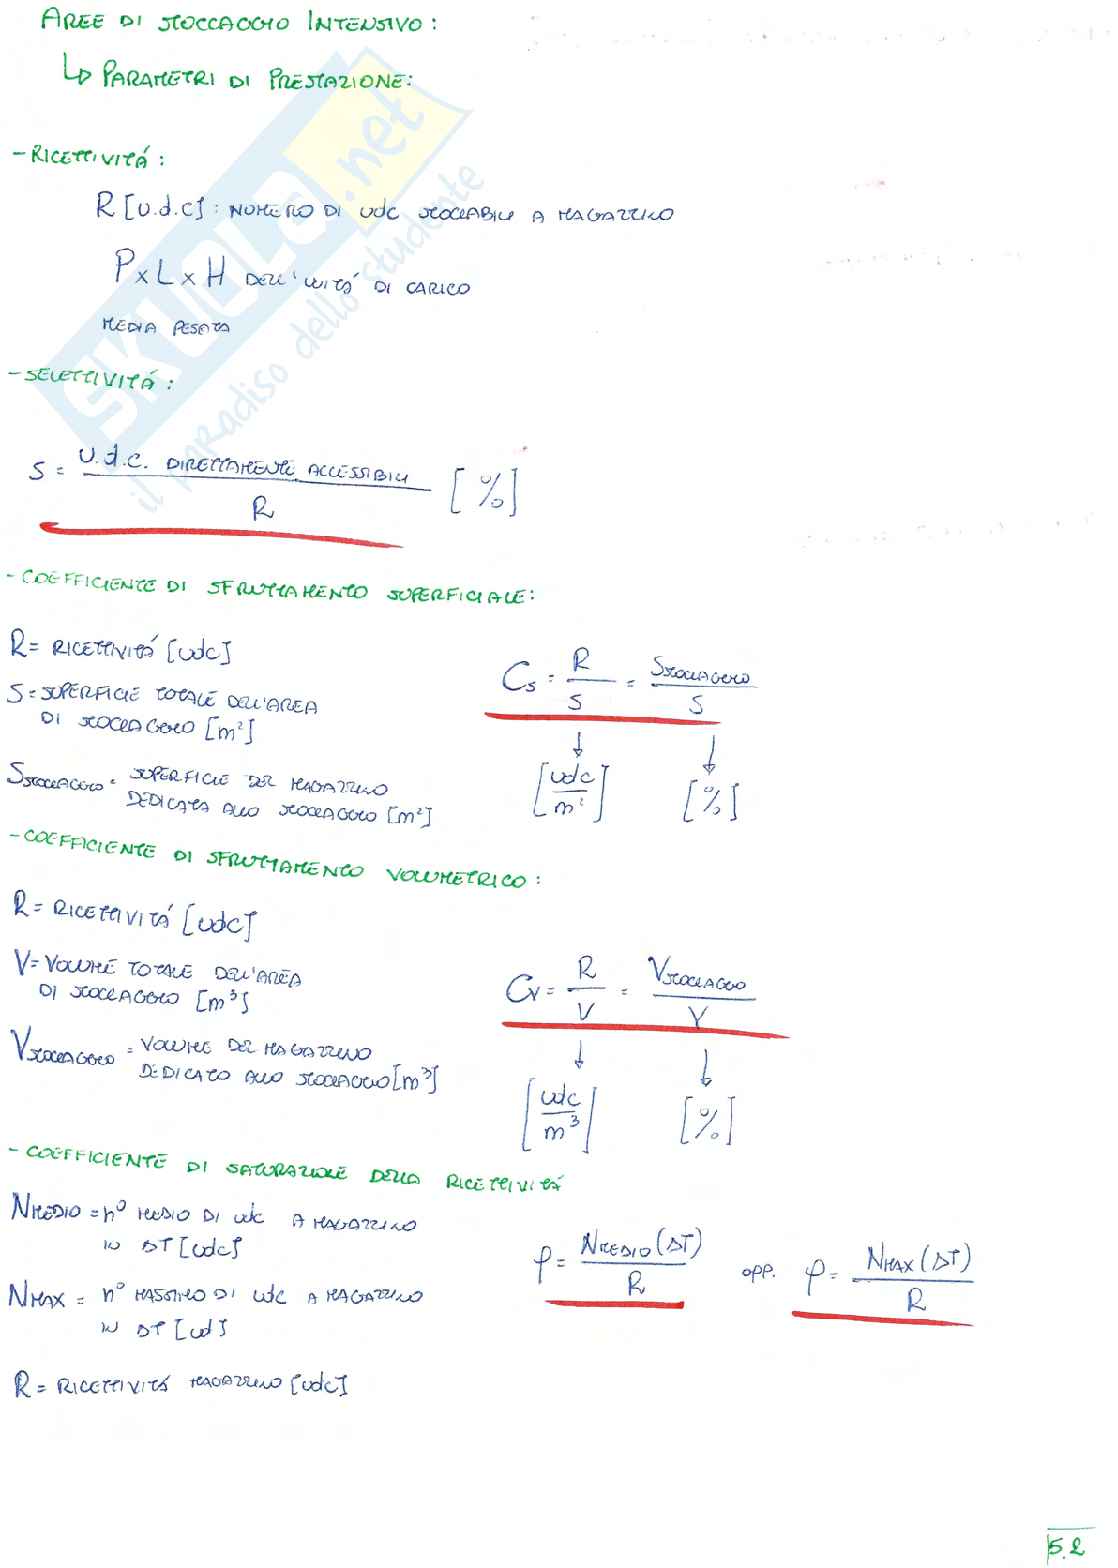 AREE DI STOCCAGGIO INTENSIVO:
↳ PARAMETRI DI PRESTAZIONE:
- RICETTIVITÁ:
R [u.d.c]: NUMERO DI udc STOCCABILI A MAGAZZINO
P x L x H DELL'UNITÁ DI CARICO
MEDIA PESATA
- SELETTIVITÁ:
S = U.d.c. DIRETTAMENTE ACCESSIBILI / R [%]
- COEFFICIENTE DI SFRUTTAMENTO SUPERFICIALE:
R = RICETTIVITÁ [udc]
S = SUPERFICIE TOTALE DELL'AREA
DI STOCCAGGIO [m²]
Sstoccaggio = SUPERFICIE DEL MAGAZZINO
DEDICATA ALLO STOCCAGGIO [m²]
Cs = R / S = Sstoccaggio / S
[udc / m²] [%]
- COEFFICIENTE DI SFRUTTAMENTO VOLUMETRICO:
R = RICETTIVITÁ [udc]
V = VOLUME TOTALE DELL'AREA
DI STOCCAGGIO [m³]
Vstoccaggio = VOLUME DEL MAGAZZINO
DEDICATO ALLO STOCCAGGIO [m³]
Cv = R / V = Vstoccaggio / V
[udc / m³] [%]
- COEFFICIENTE DI SATURAZIONE DELLA RICETTIVITÁ
NMEDIO = n° MEDIO DI udc A MAGAZZINO
IN ΔT [udc]
NMAX = n° MASSIMO DI udc A MAGAZZINO
IN ΔT [ud]
R = RICETTIVITÁ MAGAZZINO [udc]
φ = NMEDIO (ΔT) / R opp. φ = NMAX (ΔT) / R
5.2
SKUOLA.net
il paradiso dello studente